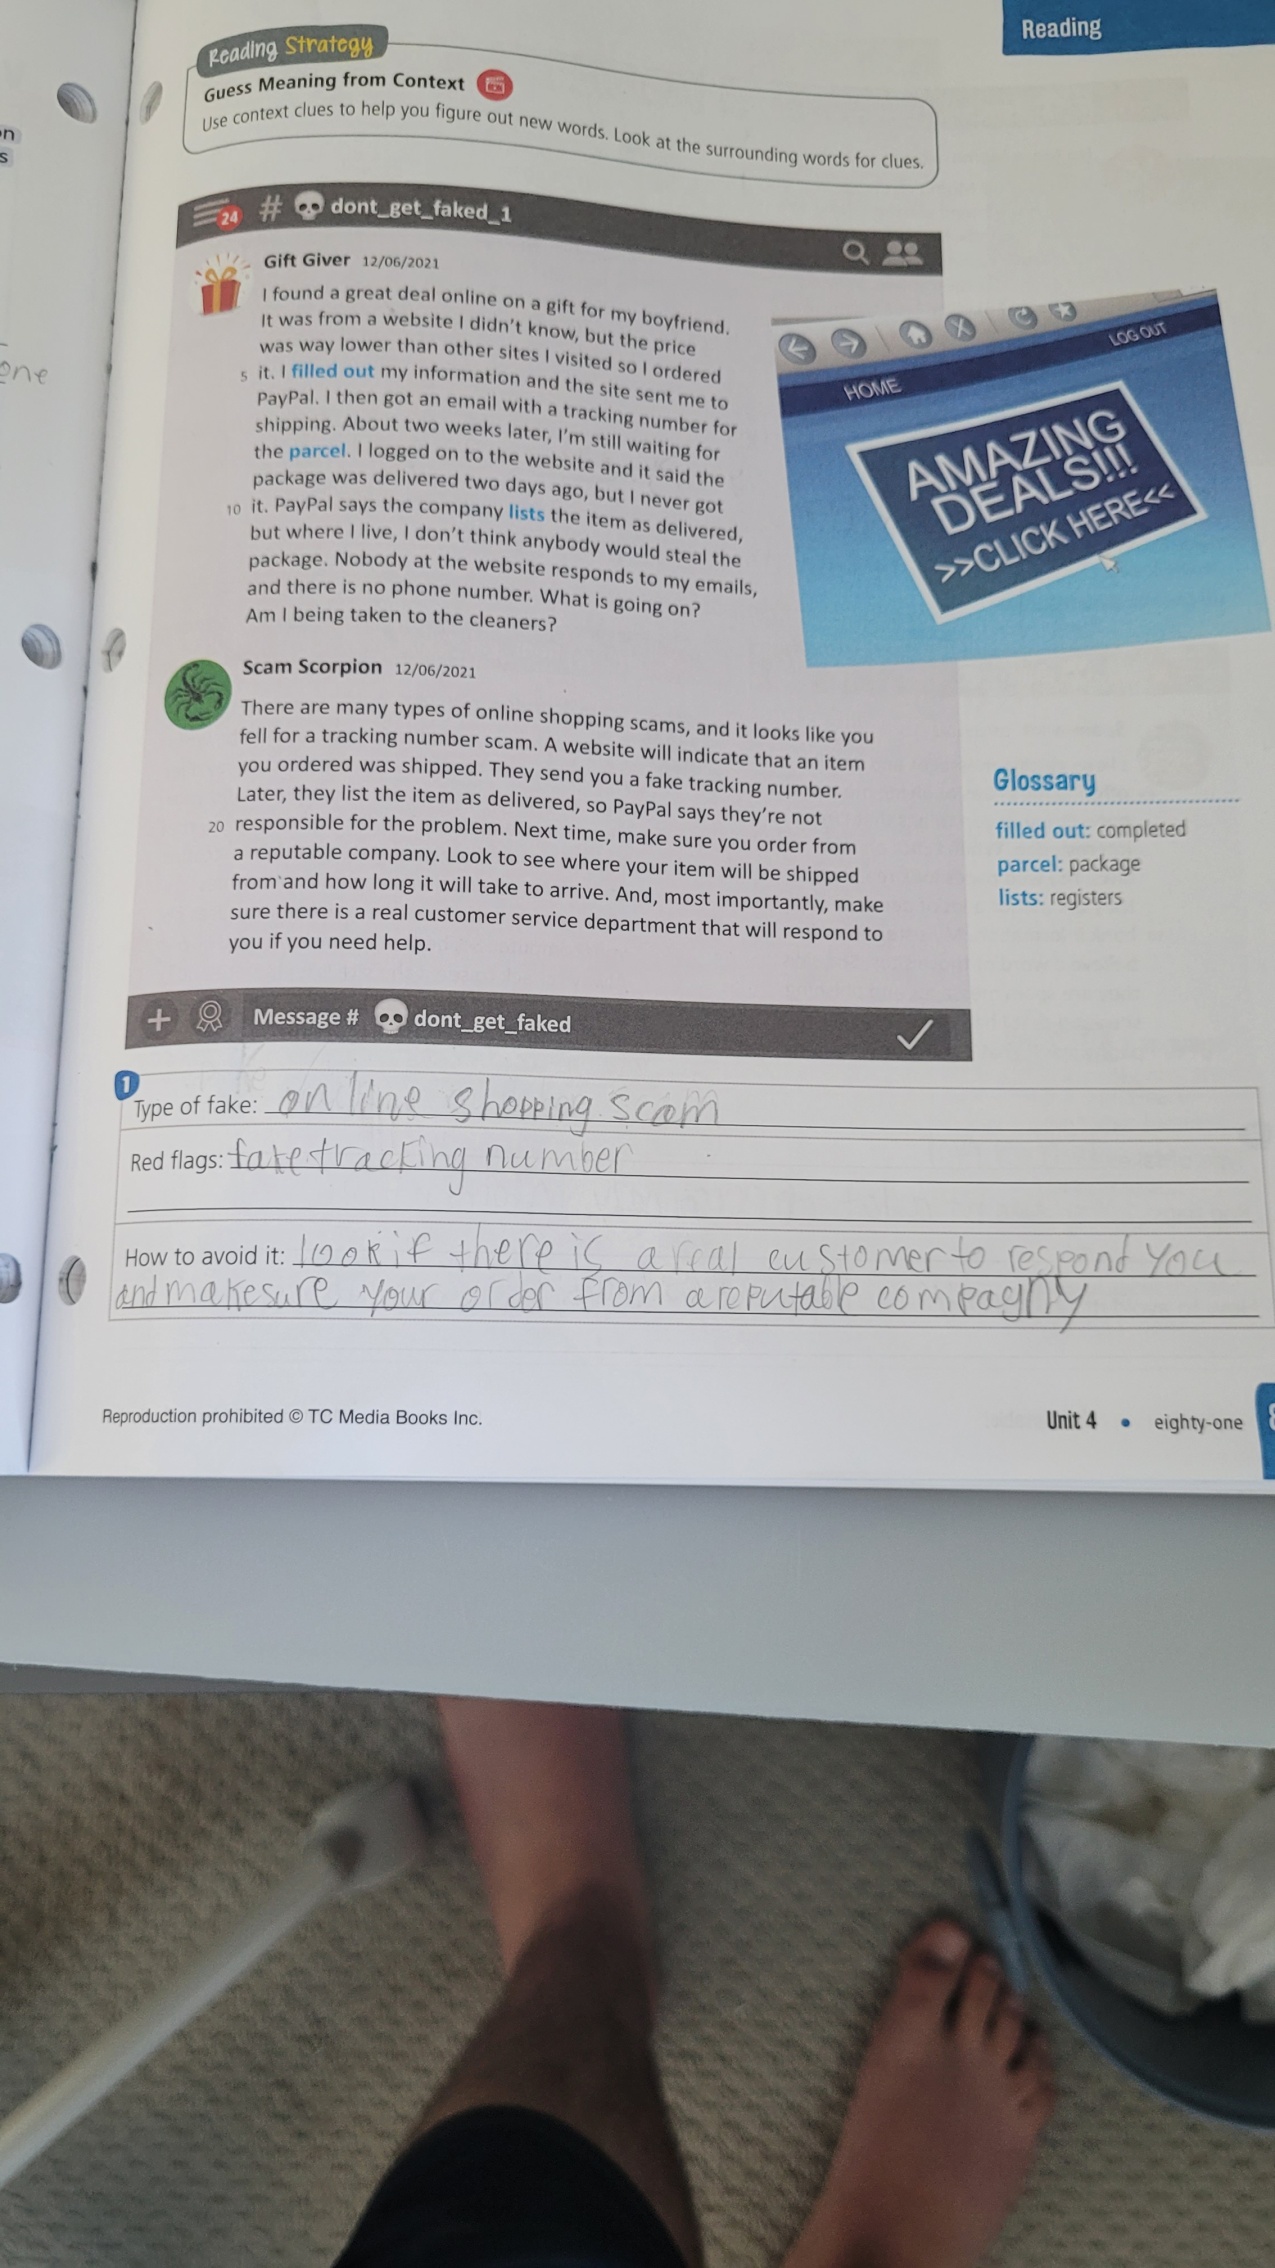 Reading
Reading Strategy
Guess Meaning from Context
Use context clues to help you figure out new words. Look at the surrounding words for clues.
on
s
one
24 # dont_get_faked_1
Gift Giver 12/06/2021
I found a great deal online on a gift for my boyfriend.
It was from a website I didn't know, but the price
was way lower than other sites I visited so I ordered
5 it. I filled out my information and the site sent me to
PayPal. I then got an email with a tracking number for
shipping. About two weeks later, I'm still waiting for
the parcel. I logged on to the website and it said the
package was delivered two days ago, but I never got
10 it. PayPal says the company lists the item as delivered,
but where I live, I don't think anybody would steal the
package. Nobody at the website responds to my emails,
and there is no phone number. What is going on?
Am I being taken to the cleaners?
LOG OUT
HOME
AMAZING
DEALS!!!
>>CLICK HERE<<
Scam Scorpion 12/06/2021
There are many types of online shopping scams, and it looks like you
fell for a tracking number scam. A website will indicate that an item
you ordered was shipped. They send you a fake tracking number.
Later, they list the item as delivered, so PayPal says they're not
20 responsible for the problem. Next time, make sure you order from
a reputable company. Look to see where your item will be shipped
from and how long it will take to arrive. And, most importantly, make
sure there is a real customer service department that will respond to
you if you need help.
Glossary
filled out: completed
parcel: package
lists: registers
+ Message # dont_get_faked
1
Type of fake: online shopping scam
Red flags: fake tracking number
How to avoid it: look if there is a real customer to respond you
and make sure your order from a reputable compagny
Reproduction prohibited © TC Media Books Inc.
Unit 4 • eighty-one